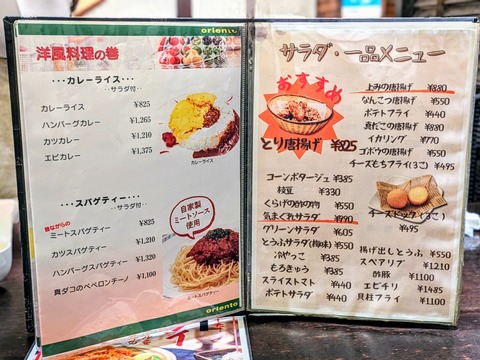 oriento
洋風料理の巻
・・・カレーライス・・・
・・サラダ付・・
カレーライス ¥825
ハンバーグカレー ¥1,265
カツカレー ¥1,210
エビカレー ¥1,375
カレーライス
・・・スパゲティー・・・
・・サラダ付・・
自家製
ミートソース
使用
昔ながらの
ミートスパゲティー ¥825
カツスパゲティー ¥1,210
ハンバーグスパゲティー ¥1,320
真ダコのペペロンチーノ ¥1,100
ミートスパゲティー
oriento
サラダ・一品メニュー
おすすめ
とり唐揚げ ¥825
上みの唐揚げ ¥880
なんこつ唐揚げ ¥550
ポテトフライ ¥440
真だこの唐揚げ ¥880
イカリング ¥770
ゴボウの唐揚げ ¥550
チーズもちフライ(3こ) ¥495
コーンポタージュ ¥385
枝豆 ¥330
くらげの酢の物 ¥550
気まぐれサラダ ¥990
グリーンサラダ ¥605
とうふサラダ(梅味) ¥550
冷やっこ ¥385
もろきゅう ¥385
スライストマト ¥440
ポテトサラダ ¥440
チーズドック(3こ)
¥495
揚げ出しとうふ ¥550
スペアリブ ¥1210
酢豚 ¥1100
エビチリ ¥1485
貝柱フライ ¥1100